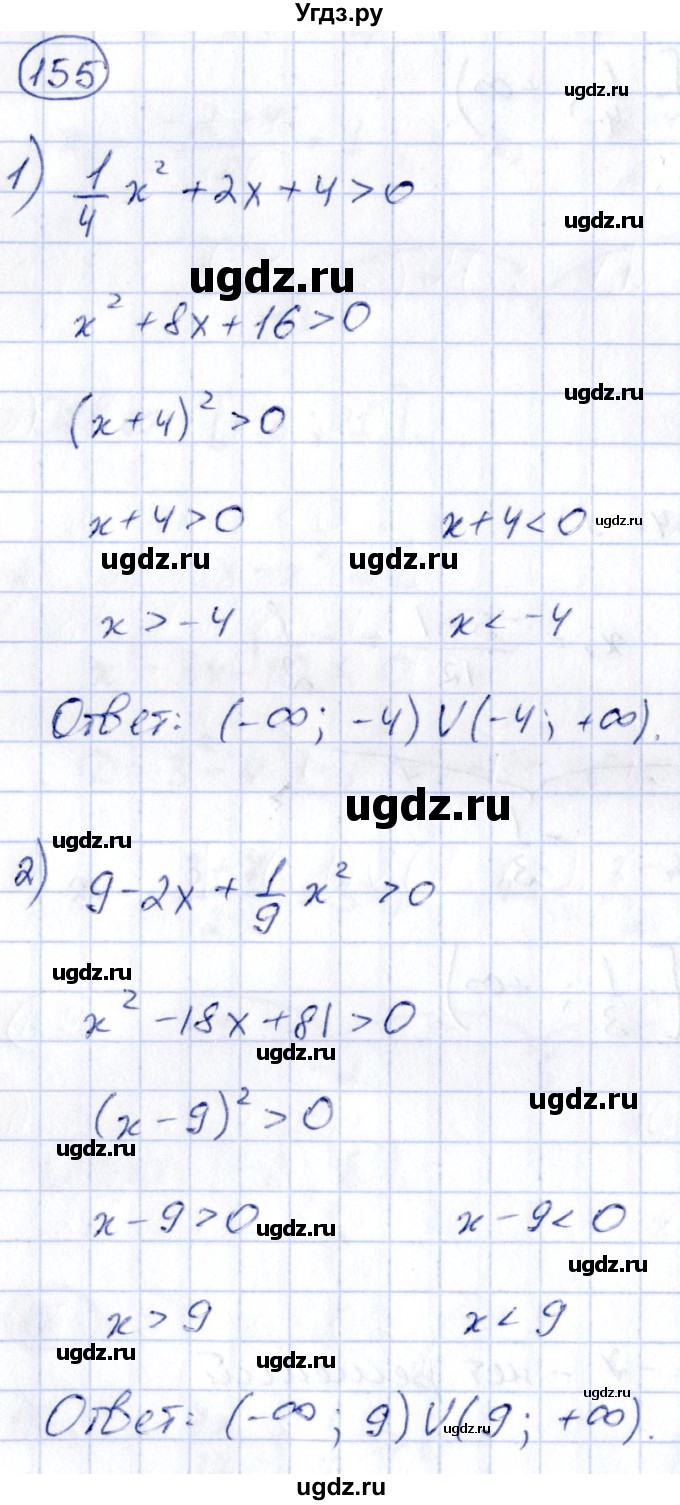 Угдз.ру
155
ugdz.ru
1) 1/4 x² + 2x + 4 > 0
ugdz.ru
ugdz.ru
x² + 8x + 16 > 0
ugdz.ru
(x + 4)² > 0
x + 4 > 0 x + 4 < 0 ugdz.ru
ugdz.ru ugdz.ru
x > -4 x < -4
Ответ: (-∞; -4) U (-4; +∞).
ugdz.ru
ugdz.ru
2) 9 - 2x + 1/9 x² > 0
ugdz.ru
x² - 18x + 81 > 0
ugdz.ru
ugdz.ru
(x - 9)² > 0
ugdz.ru
x - 9 > 0 ugdz.ru x - 9 < 0
ugdz.ru
x > 9 x < 9
ugdz.ru ugdz.ru
ugdz.ru
Ответ: (-∞; 9) U (9; +∞).
ugdz.ru
ugdz.ru